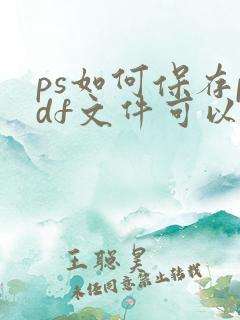 ps如何保存p
df文件可以
王聪昊
未经同意禁止转载